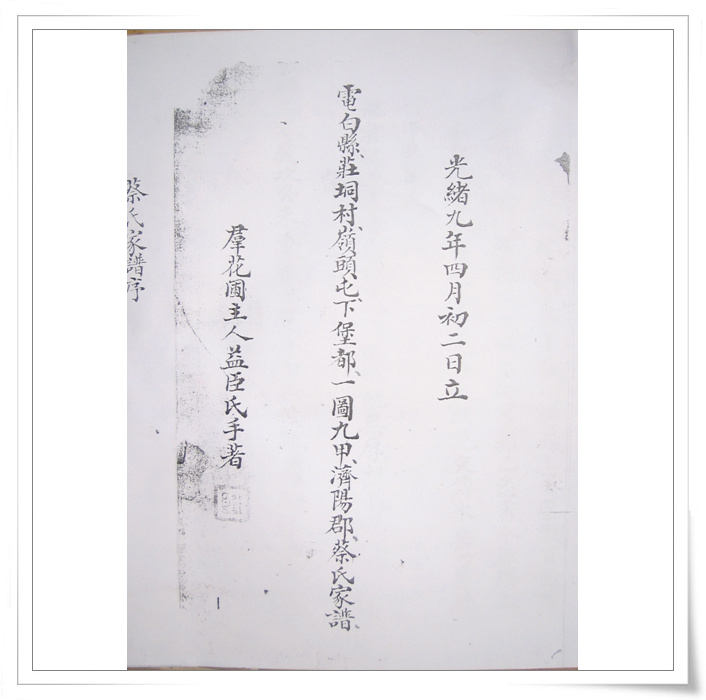 光緒九年四月初二日立
電白縣、莊垌村、嶺頭屯、下堡都、一圖九甲、濟陽郡、蔡氏家譜、
羣花圃主人益臣氏手著
蔡氏家譜序